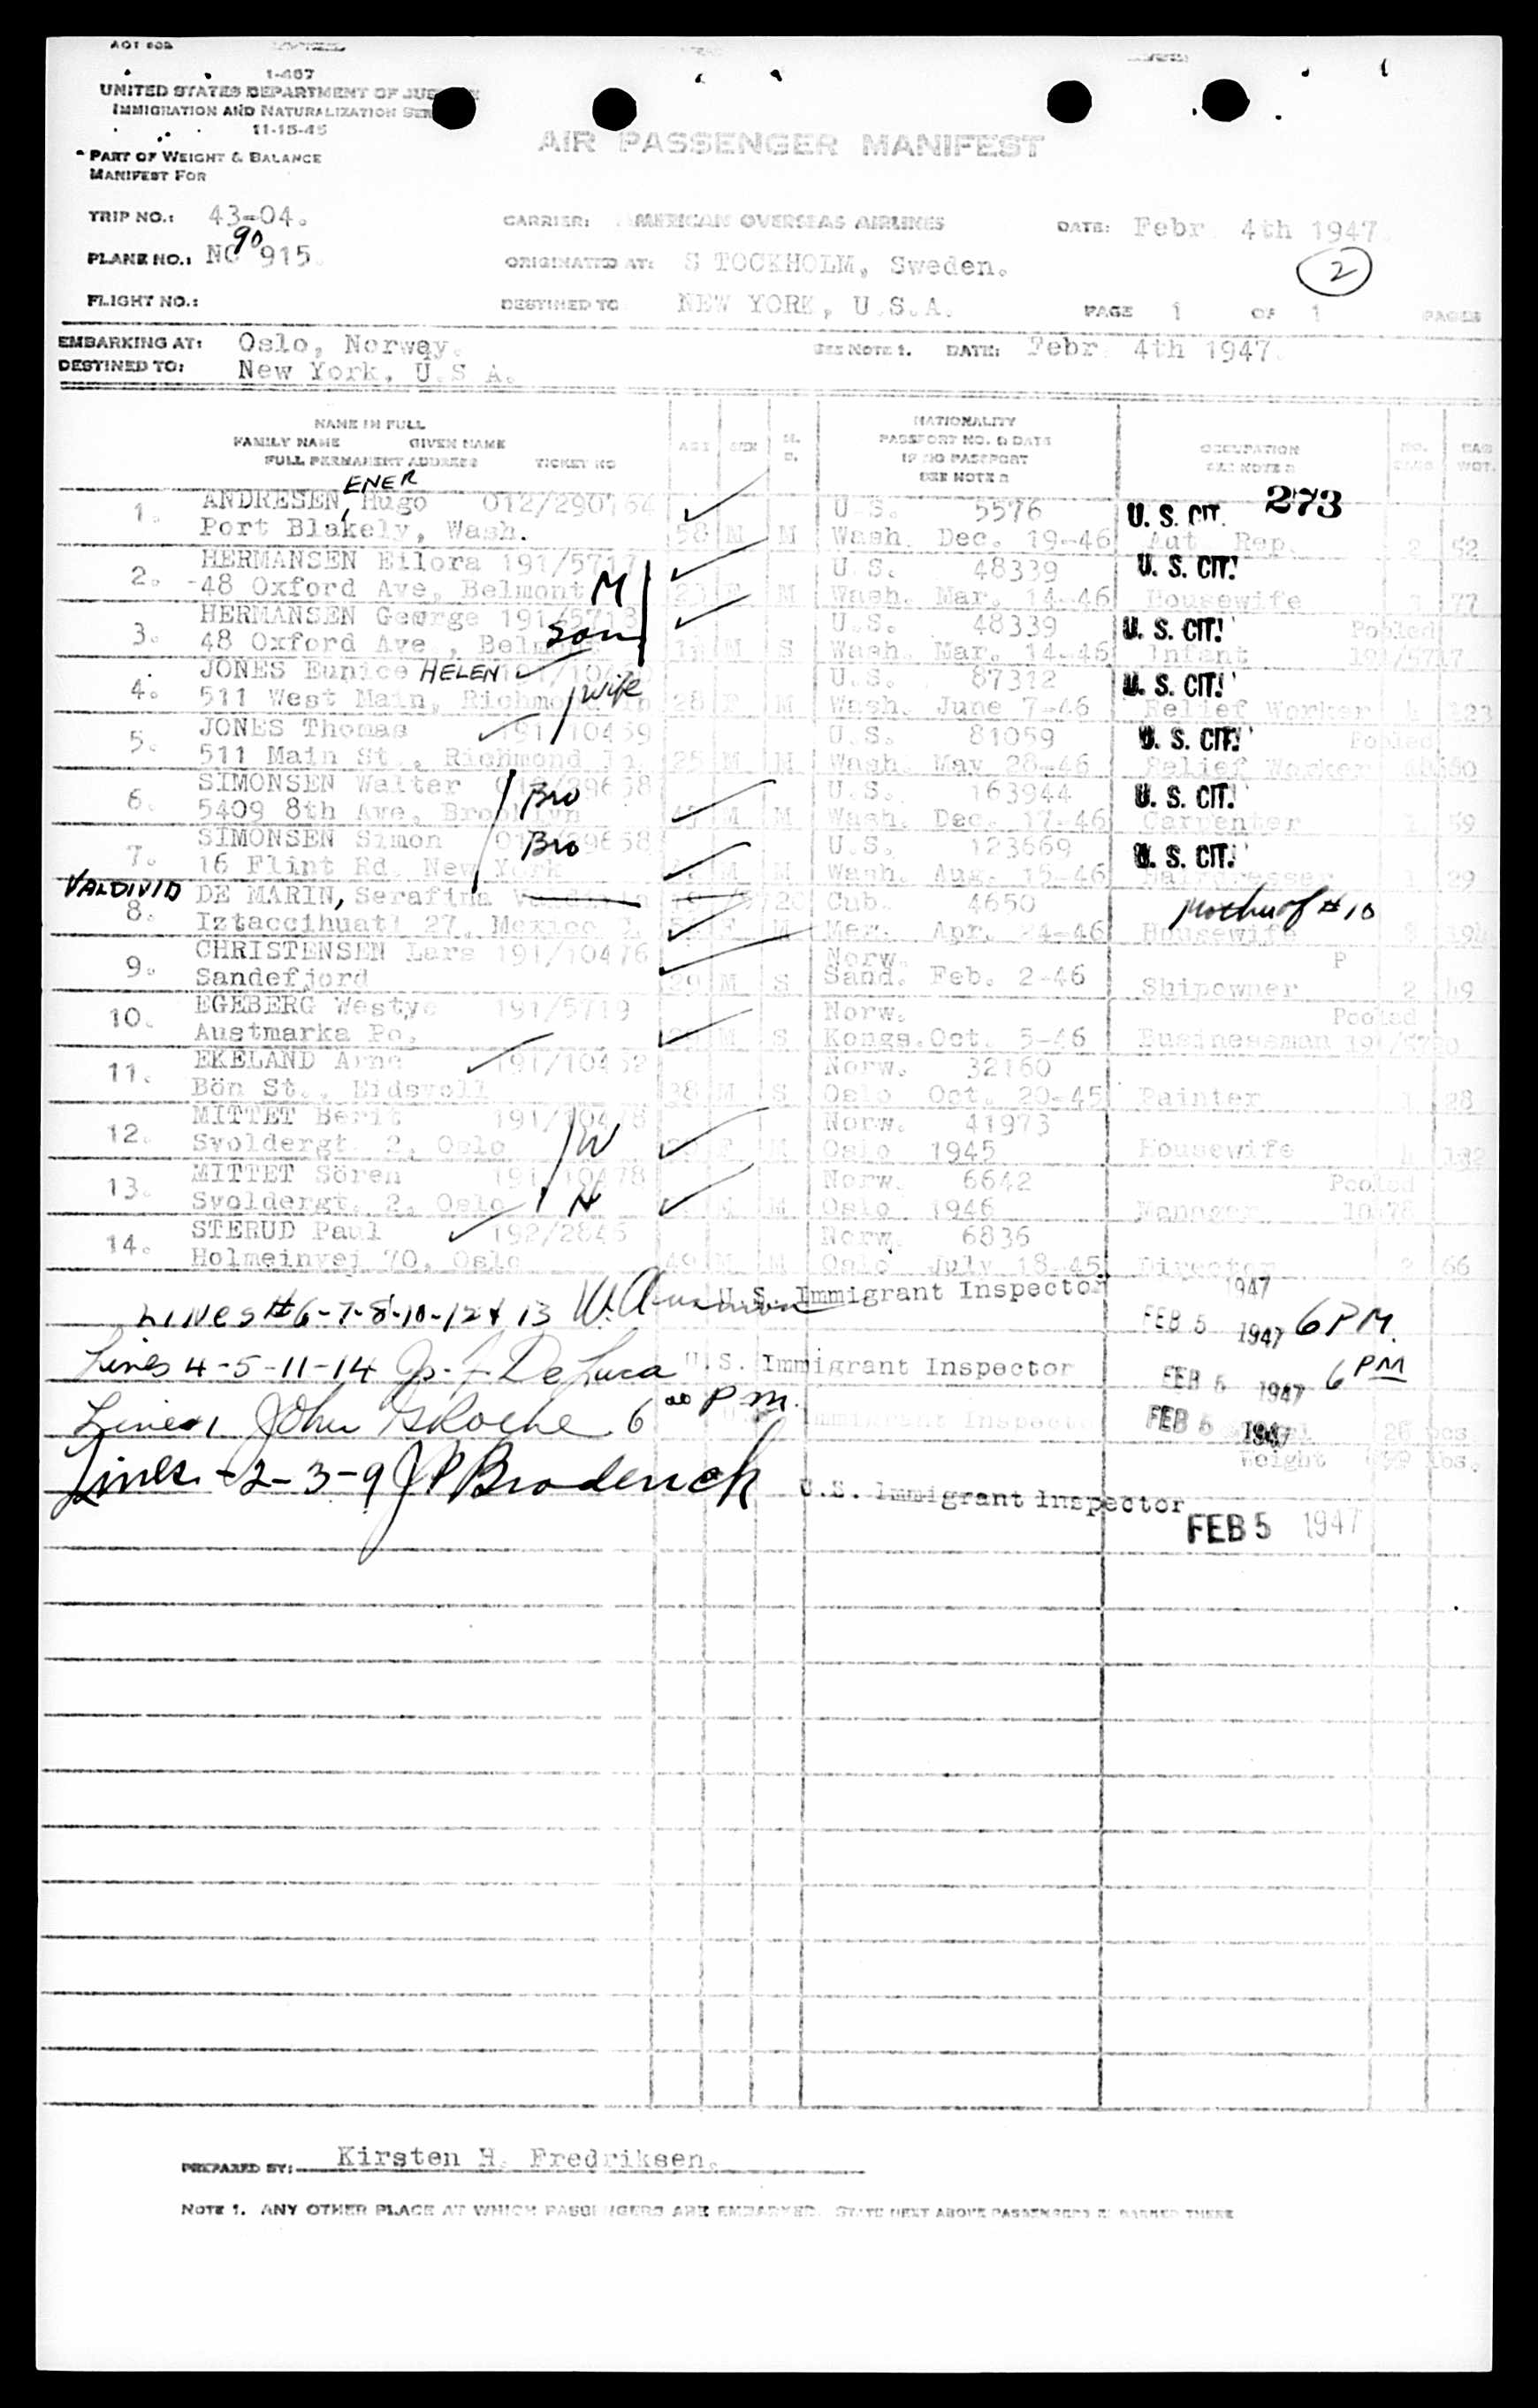 I-467
UNITED STATES DEPARTMENT OF
IMMIGRATION AND NATURALIZATION
11-15-45
AIR PASSENGER MANIFEST
PART OF WEIGHT & BALANCE
MANIFEST FOR
TRIP NO.: 43-04. CARRIER: AMERICAN OVERSEAS AIRLINES DATE: Febr 4th 1947
90
PLANE NO.: NC 915. ORIGINATED AT: STOCKHOLM, Sweden. 2
FLIGHT NO.: DESTINED TO NEW YORK, U.S.A. PAGE 1 OF 1 PAGES
EMBARKING AT: Oslo, Norway. SEE NOTE 1. DATE: Febr 4th 1947.
DESTINED TO: New York, U.S.A.
NAME IN FULL NATIONALITY
FAMILY NAME GIVEN NAME AGE SEX M. PASSPORT NO. & DATE OCCUPATION NO. BAG
FULL PERMANENT ADDRESS TICKET NO S. IF NO PASSPORT SEE NOTE WGT.
SEE NOTE
ENER 273
1. ANDRESEN, Hugo U.S. 5576 U. S. CIT.
Port Blakely, Wash. 58 M M Wash. Dec. 19-46 Aut. Rep. 2 52
2. HERMANSEN 191/5717 U.S. 48339 U. S. CIT.
48 Oxford Ave, Belmont M F M Wash. Mar. 14-46 Housewife 77
3. HERMANSEN George 191/5718 U.S. 48339 U. S. CIT. Pooled
48 Oxford Ave., son M S Wash. Mar. 14-46 Infant 191/5717
4. JONES Eunice HELEN U.S. 87312 U. S. CIT.
511 West Main, Richmond wife 28 F M Wash. June 7-46 Relief Worker 123
5. JONES Thomas 191/10459 U.S. 81059 U. S. CIT. Pooled
511 Main St., Richmond In. 25 M M Wash. May 28-46 Relief Worker
6. SIMONSEN Walter Bro U.S. 163944 U. S. CIT.
5409 8th Ave. Brooklyn M M Wash. Dec. 17-46 Carpenter 59
7. SIMONSEN Simon Bro U.S. 123669 U. S. CIT.
16 Flint Rd. New York M M Wash. Aug. 15-46 Hairdresser 29
VALDIVID
8. DE MARIN, Serafina Cub. 4650 Mother of #10
Iztaccihuatl 27, Mexico F M Mex. Apr. 24-46 Housewife
9. CHRISTENSEN Lars 191/10476 Norw. P
Sandefjord 29 M S Sand. Feb. 2-46 Shipowner 2 49
10. EGEBERG Westye 191/5719 Norw. Pooled
Austmarka Po, M S Kongs. Oct. 5-46 Businessman
11. EKELAND Arne 191/10452 Norw. 32160
Bön St., Eidsvoll 38 M S Oslo Oct. 20-45 Painter 28
12. MITTET Berit 191/10478 W Norw. 41973
Svoldergt. 2, Oslo F M Oslo 1945 Housewife 132
13. MITTET Sören 191/10478 H Norw. 6642 Pooled
Svoldergt. 2, Oslo M M Oslo 1946 Manager 10478
14. STERUD Paul 192/2845 Norw. 6836
Holmeinvej 70, Oslo 49 M M Oslo July 18-45 Director 2 66
LINES #6-7-8-10-12 & 13 U.S. Immigrant Inspector FEB 5 1947 6 PM.
Lines 4-5-11-14 De Luca U.S. Immigrant Inspector FEB 5 1947 6 PM
Line 1 John G Roche 6 00 P m. U.S. Immigrant Inspector FEB 5 1947 26 pcs
Weight 999 lbs.
Lines - 2-3-9 J P Broderick U.S. Immigrant Inspector
FEB 5 1947
PREPARED BY: Kirsten H. Fredriksen.
NOTE 1. ANY OTHER PLACE AT WHICH PASSENGERS ARE EMBARKED. STATE NEXT ABOVE PASSENGERS EMBARKED THERE